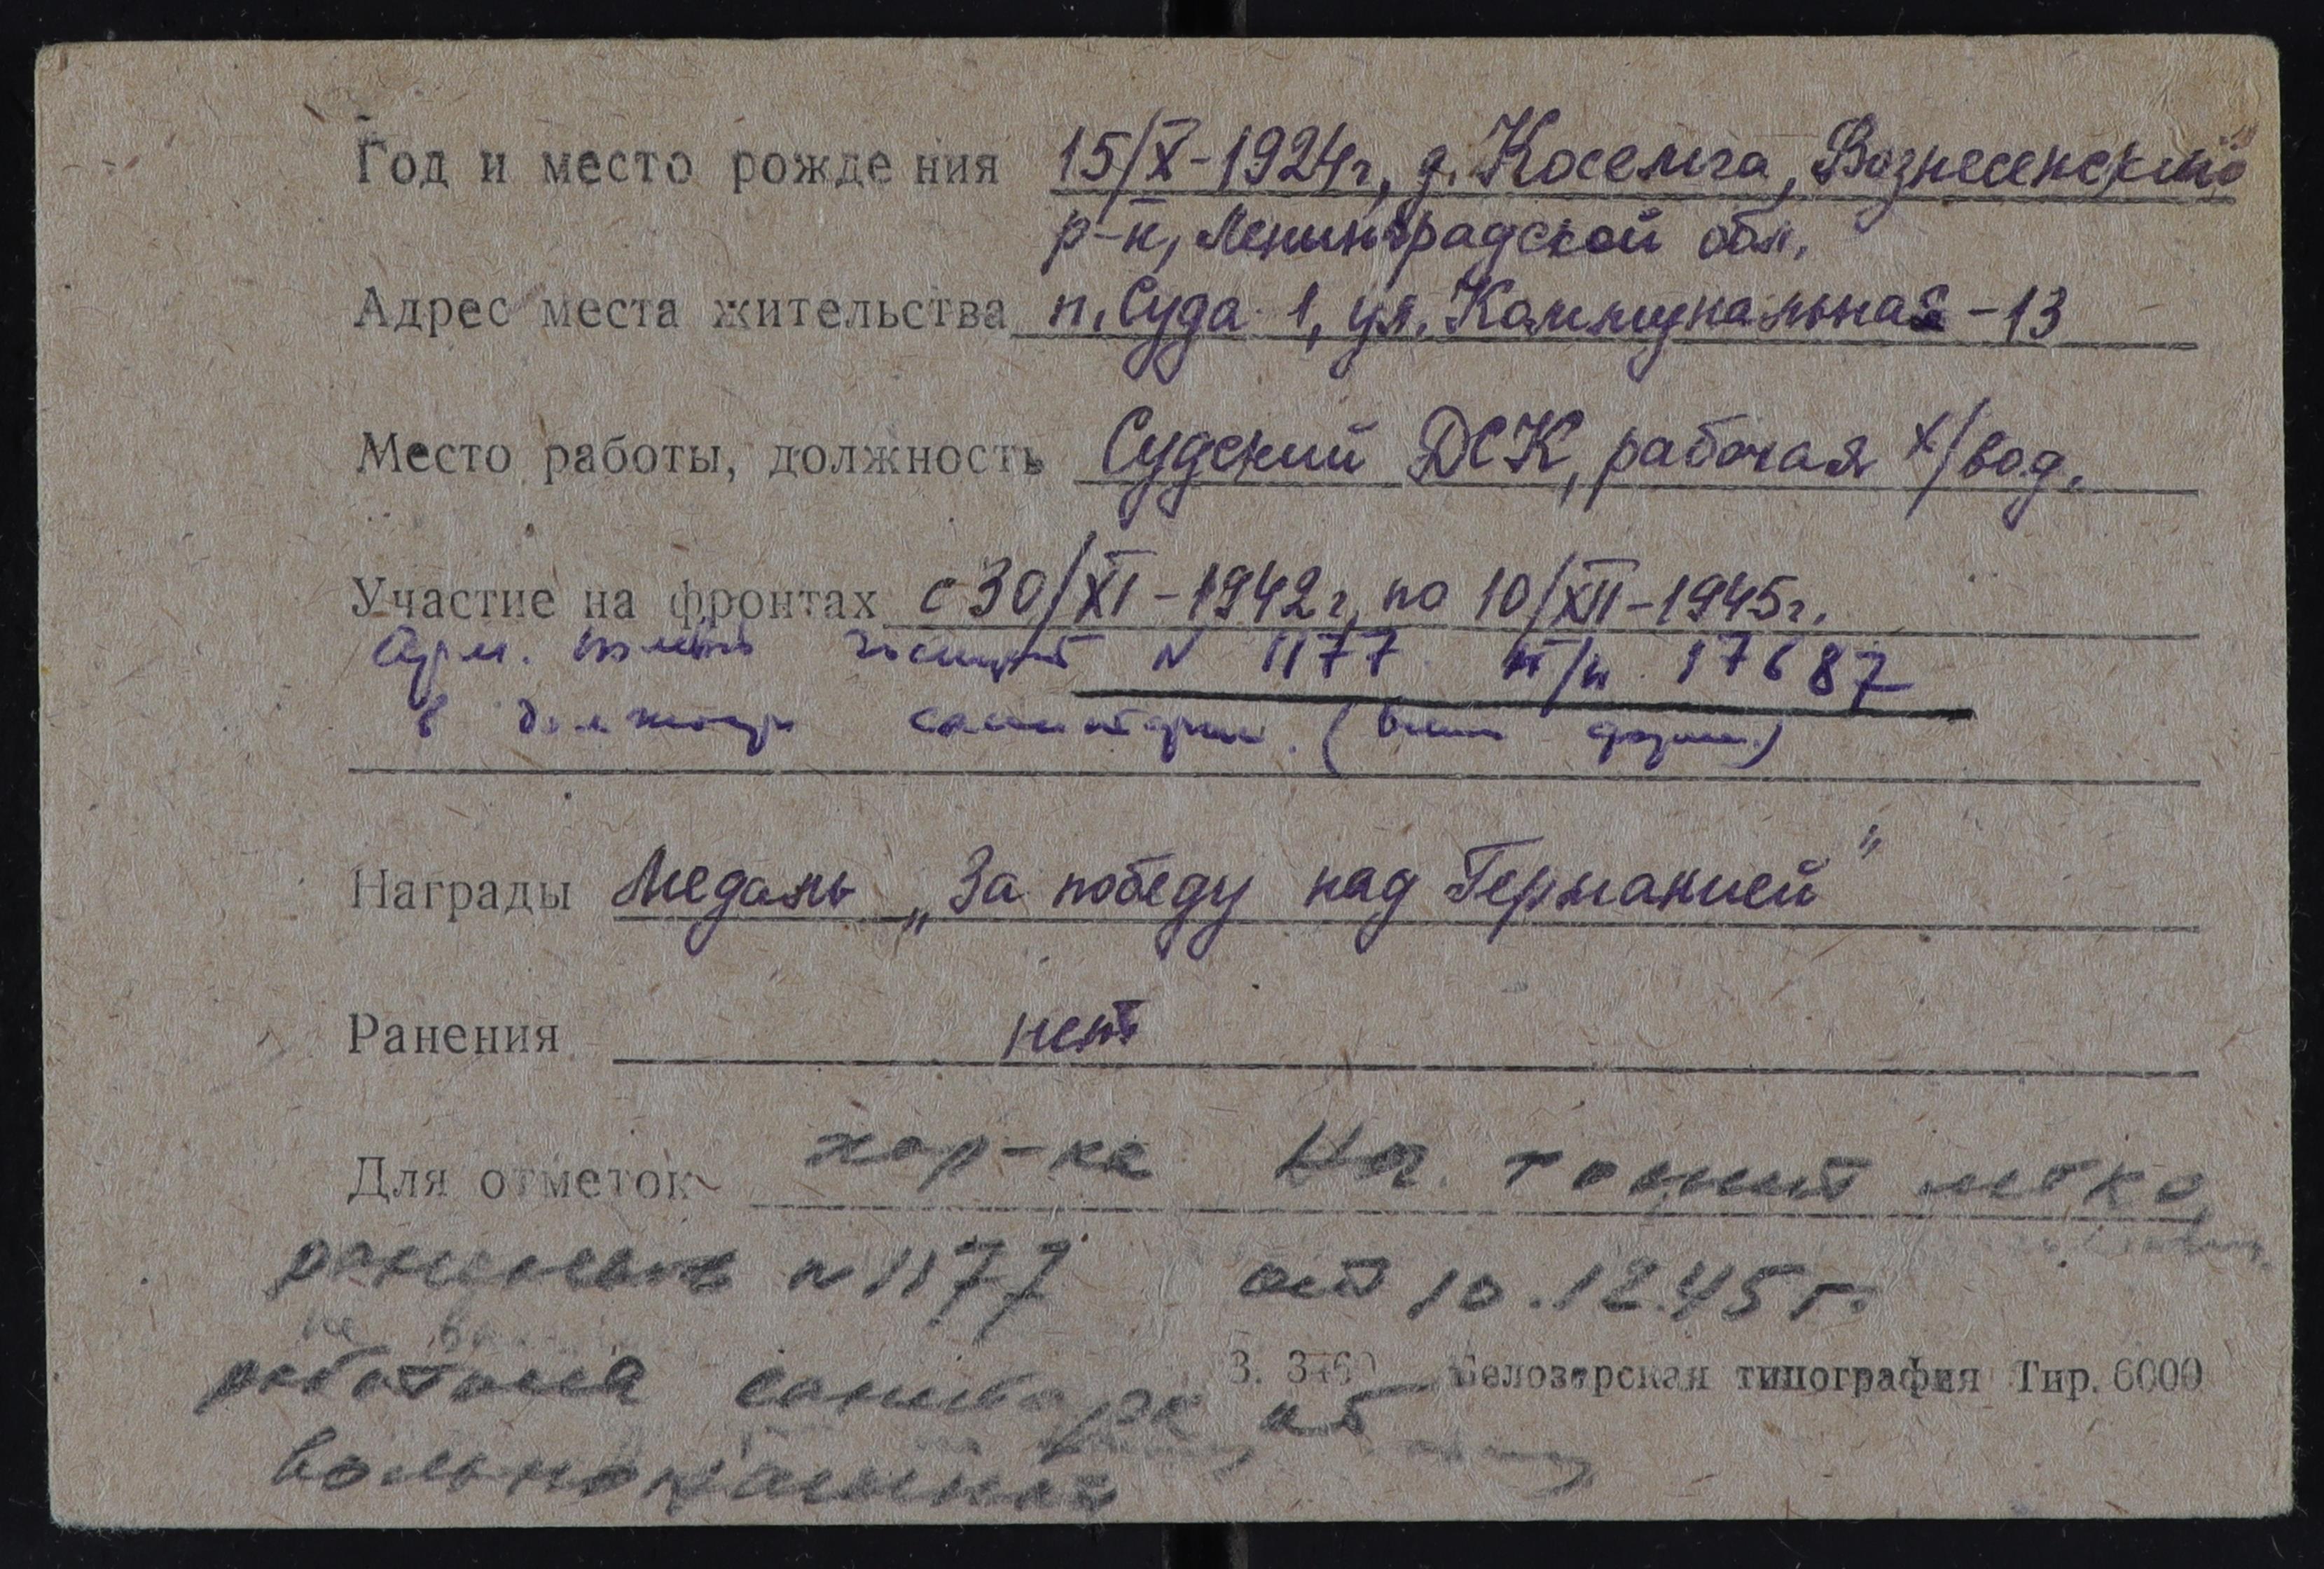 Год и место рождения 15/X-1924г, д. Косельга, Вознесенский
р-н, Ленинградской обл.
Адрес места жительства п. Суда 1, ул. Коммунальная-13
Место работы, должность Судский ДСК, рабочая х/вод.
Участие на фронтах с 30/XI-1942г, по 10/XII-1945г.
Арм. госпит N 1177 п/п 17687
в санитарки. (вольн
Награды Медаль „За победу над Германией"
Ранения нет
Для отметок хар-ка легко
раненых N 1177 от 10.12.45 г.
работала санитаркой
вольнонаемная
З. 3460 Белозерская типография Тир. 6000